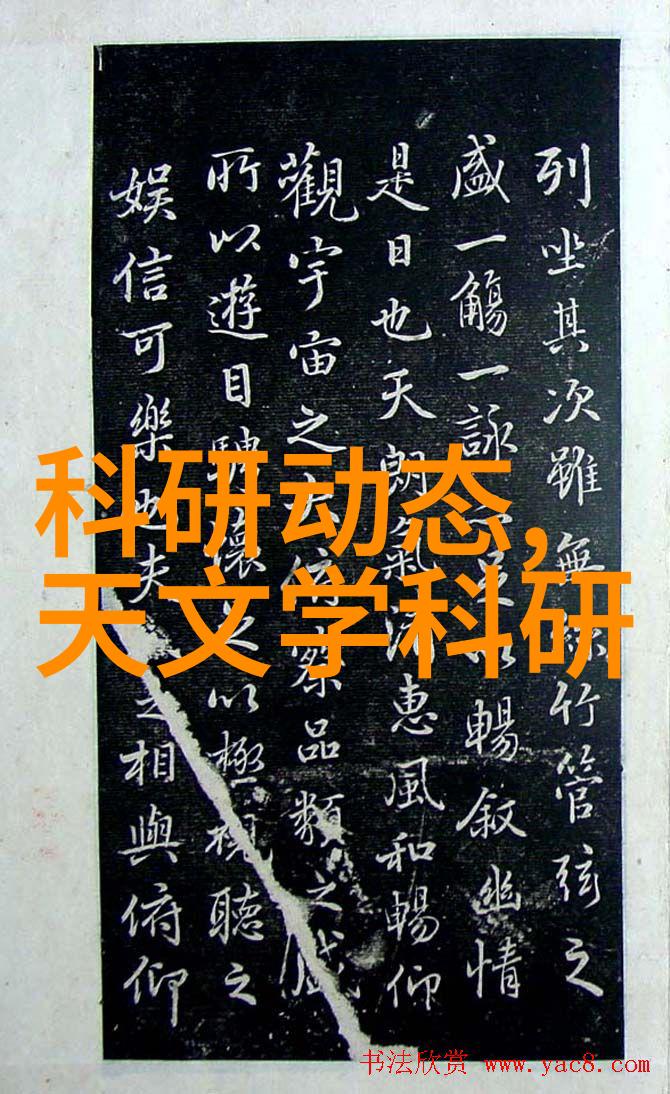 列坐其次雖無竹管弦之
盛一觴一詠足暢叙幽情
是日也天朗氣清惠風和暢仰
觀宇宙之大俯察品類之盛
所以遊目騁懷足以極視聽之
娱信可樂也夫之相與俯仰
科研动态,
天文学科研
书法欣赏 www.yac8.com